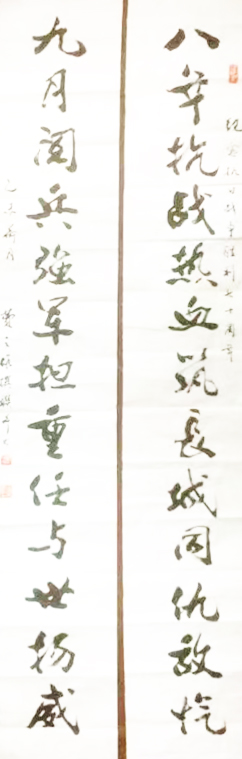 八年抗战热血筑長城同仇敌忾
纪念抗日战争胜利七十周年
九月阅兵強军担重任与世扬威
乙未